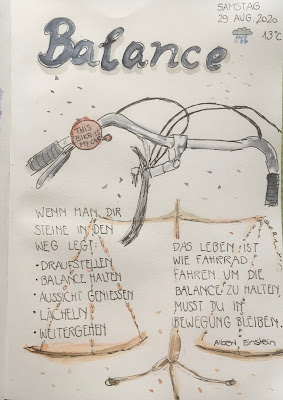 SAMSTAG
29 AUG. 2020
13°C
Balance
THIS
BIKE IS
MY CAR
WENN MAN DIR
STEINE IN DEN
WEG LEGT:
• DRAUFSTELLEN
• BALANCE HALTEN
• AUSSICHT GENIESSEN
• LÄCHELN
• WEITERGEHEN
DAS LEBEN IST
WIE FAHRRAD
FAHREN. UM DIE
BALANCE ZU HALTEN,
MUSST DU IN
BEWEGUNG BLEIBEN.
Albert Einstein